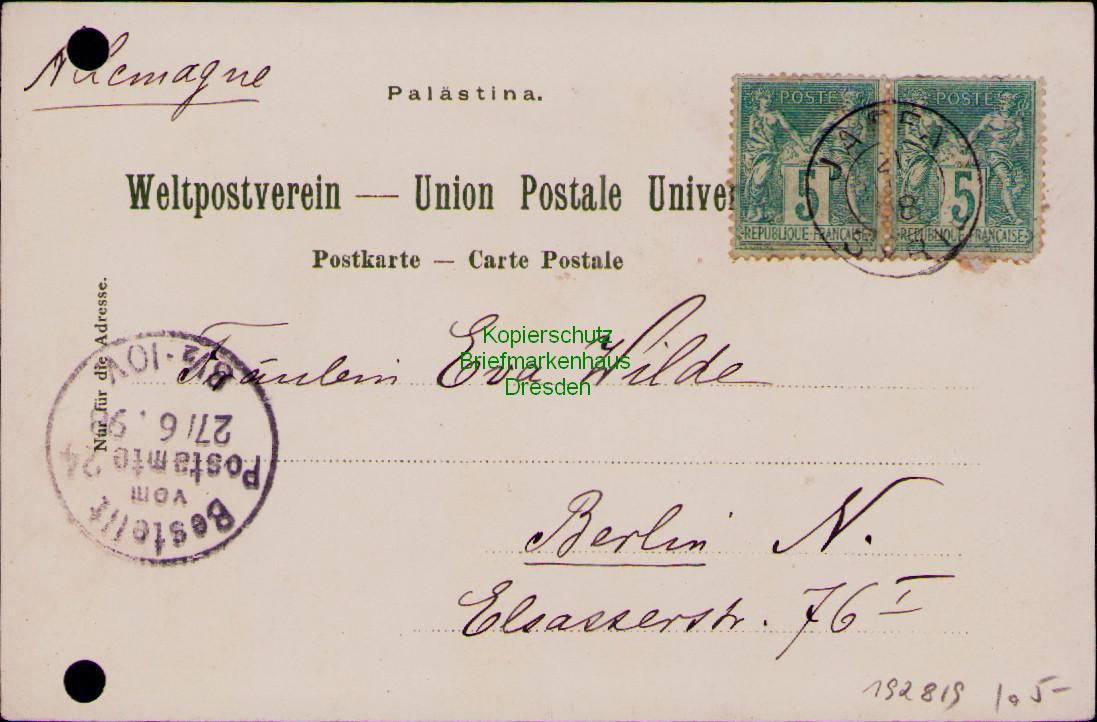 Allemagne
Palästina.
Weltpostverein — Union Postale Univer
Postkarte — Carte Postale
POSTE
5
REPUBLIQUE FRANÇAISE
POSTE
5
REPUBLIQUE FRANÇAISE
JAFFA
SYRIE
Nur für die Adresse.
Fräulein Eva Wilde
Berlin N.
Elsasserstr. 76 I
Bestellt
vom
Postamte 24
27/6. 98
8½-10V
Kopierschutz
Briefmarkenhaus
Dresden
192819 10 5-